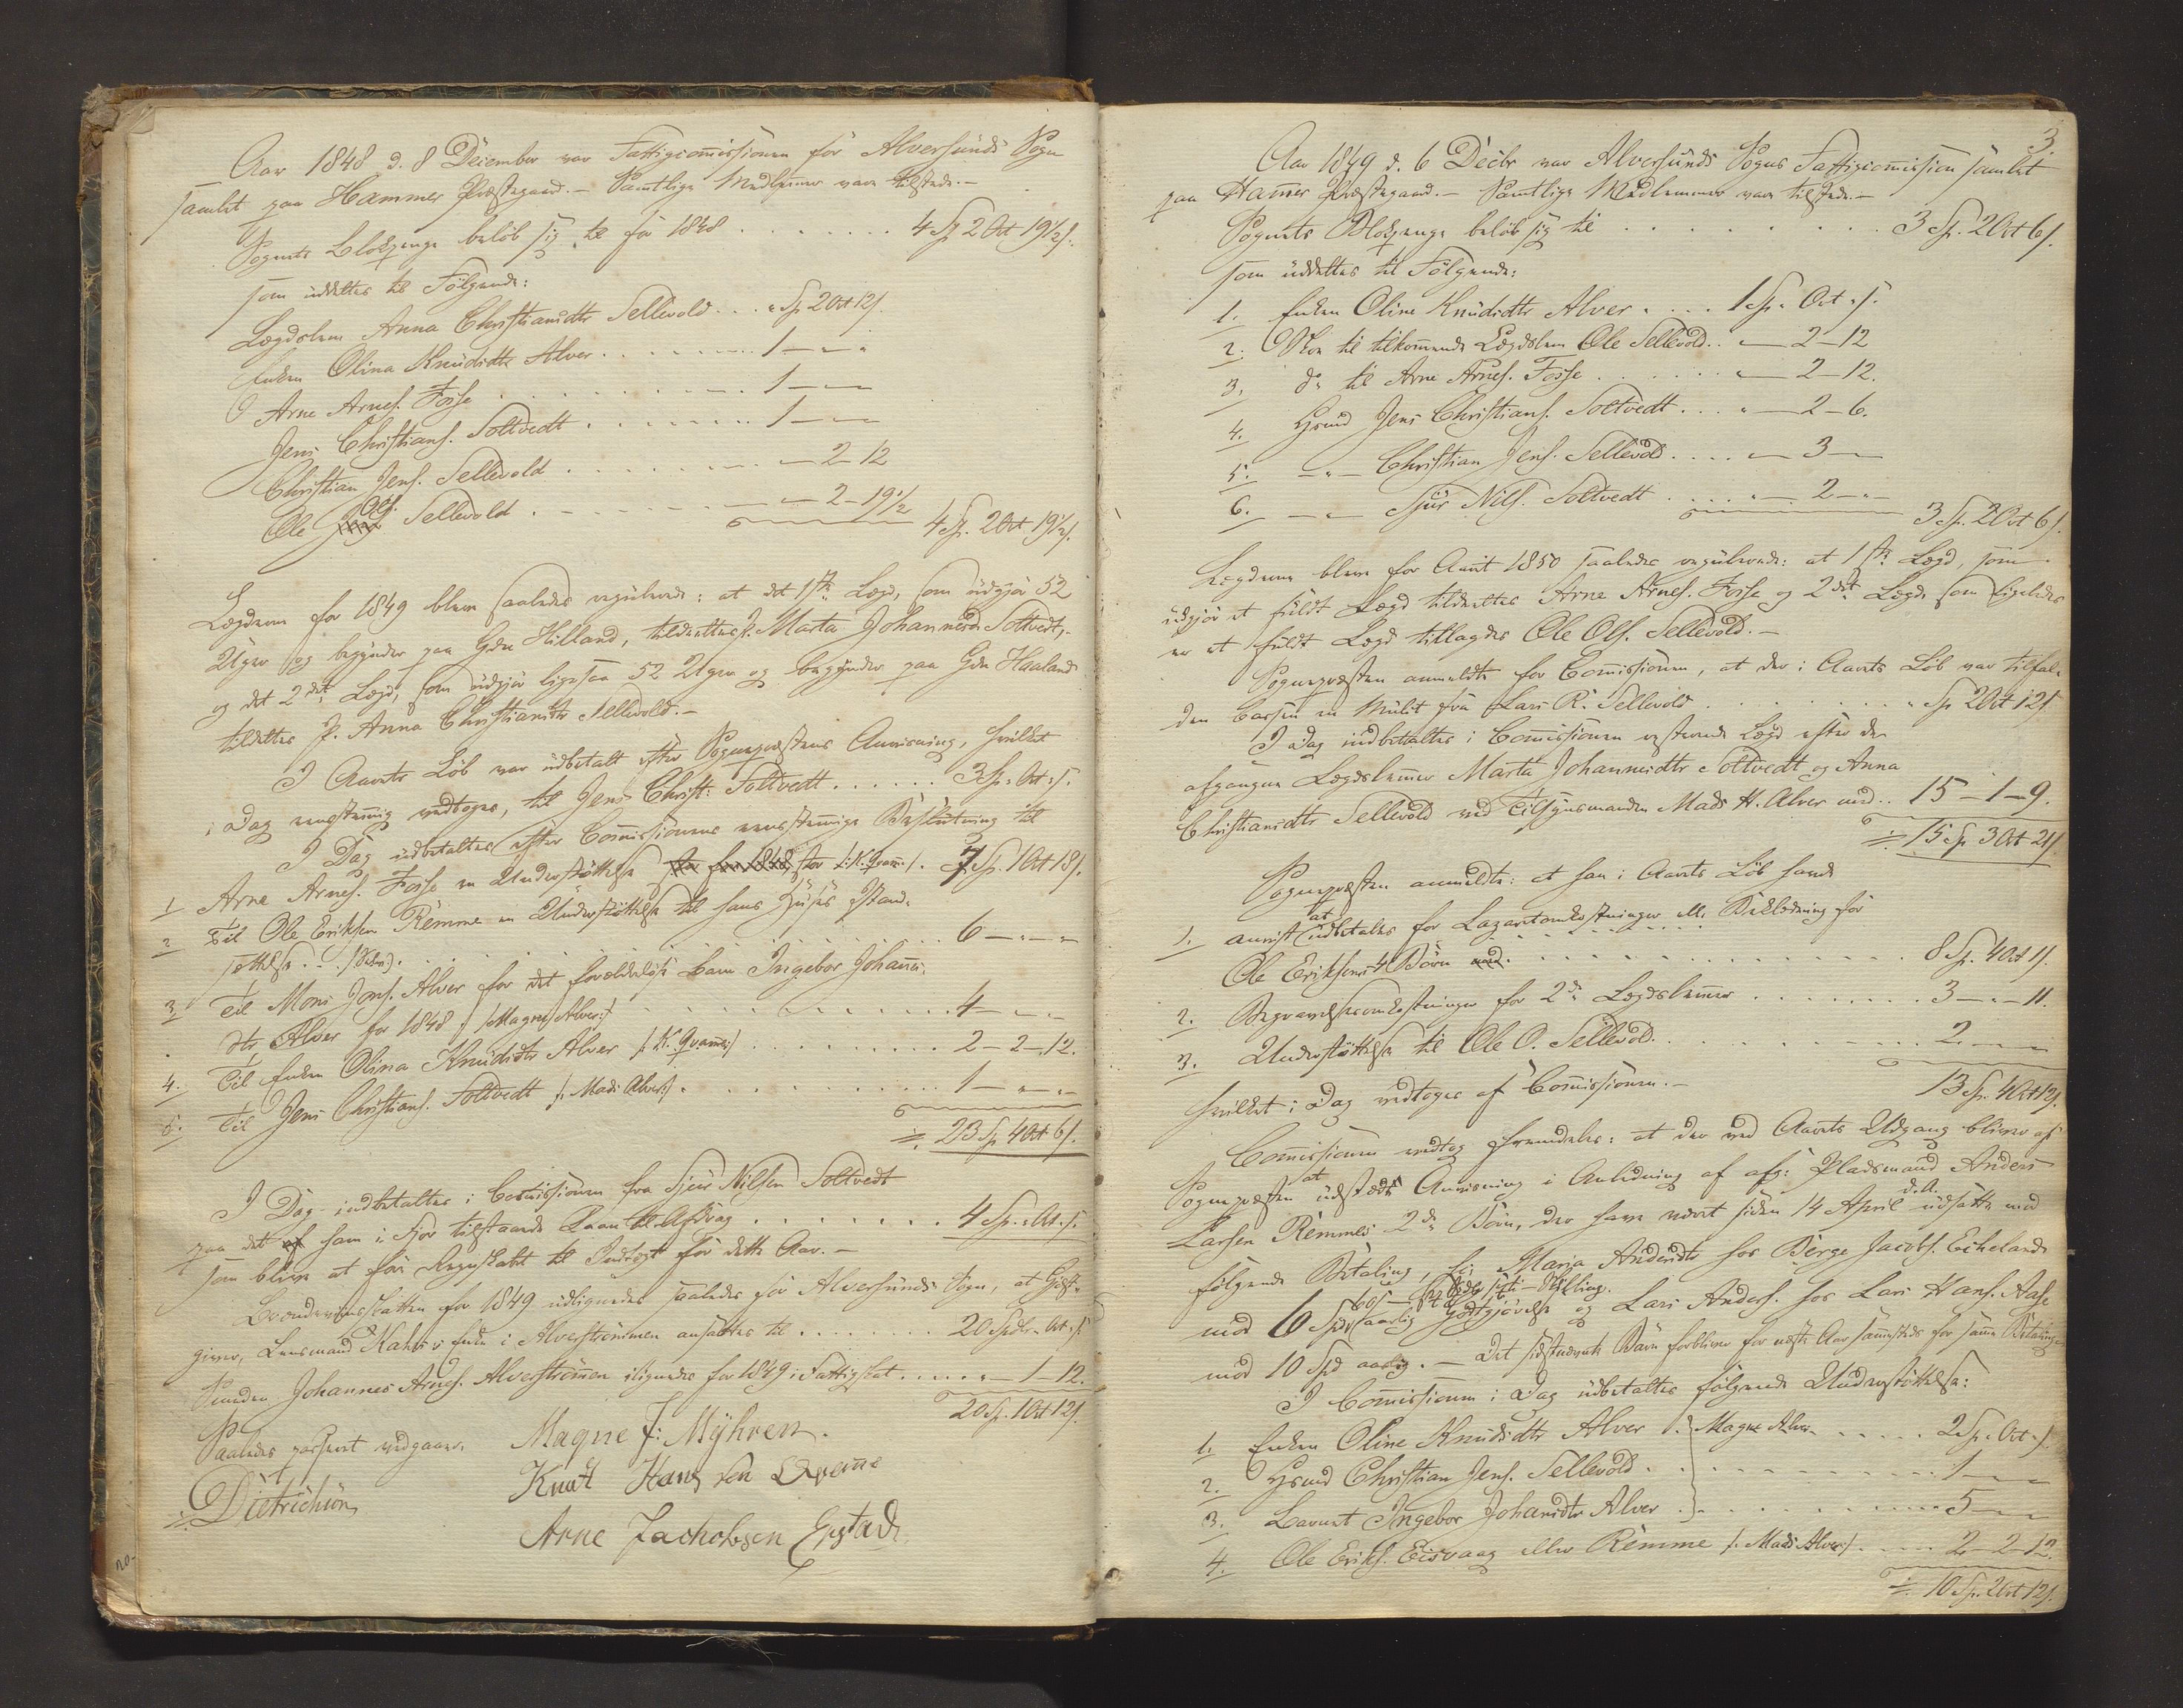 Aar 1848 d. 8 December var Fattigcom̄issionen for Alversunds Sogn
samlet paa Hammer Præstegaard. – Samtlige Medlemmer vare tilstede. –
Sognets Blokpenge beløb sig til for 1848 . . . . . . . 4 Sp 2 Ort 19½ s.
som uddeltes til Følgende:
Lægdslem Anna Christiansdtr Sellevold . . . " Sp 2 Ort 12 s.
Enken Olina Knudsdtr Alver . . . . . . . 1 – " – "
Arne Arnes. Fosse . . . . . . . 1 – " –
Jens Christians. Soltvedt . . . . . . . 1 – " –
Christian Jens. Sellevold . . . . . . . – 2 – 12
Ole Ols. Sellevold . . . . . . . – 2 – 19½
4 Sp. 2 Ort 19½ s.
Lægderne for 1849 bleve saaledes regulerede: at det 1ste Lægd, som udgjør 52
Uger og begynder paa Gdn Hilland, tildeltes P. Marta Johannesdr Soltvedt,
og det 2det Lægd, som udgjør ligesaa 52 Uger og begynder paa Gdn Haaland
tildeltes P. Anna Christiansdtr Sellevold. –
I Aarets Løb var udbetalt efter Sognepræstens Anvisning, hvilket
i Dag eenstemmig vedtoges, til Jens Christ: Soltvedt . . . . . . 3 Sp. " Ort " s.
I Dag udbetaltes efter Commissionens eenstemmige Beslutning til
1 Arne Arnes. Fosse en Understøttelse stor /: K. Qvam̄e :/. 7 Sp. 1 Ort 18 s.
2 Til Ole Eriksen Remme en Understøttelse til hans Huses Istand-
sættelse . . . . . . . 6 – " – "
3 Til Mons Jons. Alver for det forældreløse Barn Ingebor Johannes-
dtr Alver for 1848 /: Magne Alver :/ . . . . . . . 4 – " –
4. Til Enken Olina Knudsdtr Alver /: K. Qvam̄e :/ . . . . . . . 2 – 2 – 12.
5. Til Jens Christians. Soltvedt /: Mads Alver :/ . . . . . . . 1 – " – "
23 Sp 4 Ort 6 s.
I Dag indbetaltes i Com̄issionen fra Sjur Nilsen Soltvedt
paa det ham i Fjor tilstaaede Laan til Afdrag . . . . . . . 4 Sp. " Ort " s.
som bliver at føre Regnskabet til Indtægt for dette Aar. –
Brændeviinsskatten for 1849 udlignedes saaledes for Alversunds Sogn, at Gjest-
giver, Lensmand Kahrs's Enke i Alverstrømmen ansættes til . . . . . . . 20 Spd. " Ort " s.
Svenden Johannes Arnes. Alverstrømmen ilignedes for 1849 i Fattigskat . . . . . " – 1 – 12.
20 Sp. 1 Ort 12 s.
Saaledes passeret vedgaaer
Dietrichson
Magne J: Myhren.
Knut Hans sen Qvame
Arne Jachobsen Erstad
3.
Aar 1849 d. 6 Decbr var Alversunds Sogns Fattigcom̄ission samlet
paa Ham̄er Præstegaard. – Samtlige Medlemmer vare tilstede. –
Sognets Blokpenge beløb sig til . . . . . . . 3 Sp. 2 Ort 6 s.
som uddeltes til Følgende:
1. Enken Oline Knudsdtr Alver . . . . 1 Sp. " Ort " s.
2. Skoe til tilkommende Lægdslem Ole Sellevold . . " – 2 – 12
3. do til Arne Arnes. Fosse . . . . . . . " – 2 – 12.
4. Hsmd Jens Christians. Soltvedt . . . " – 2 – 6.
5. – " – Christian Jens. Sellevold . . . . " – 3 – "
6. – " – Sjur Nils. Soltvedt . . . . " – 2 – " –
3 Sp. 2 Ort 6 s.
Lægderne bleve for Aaret 1850 saaledes regulerede: at 1ste Lægd, som
udgjør et fuldt Lægd tildeeltes Arne Arnes. Fosse og 2det Lægd som ligeledes
er et fuldt Lægd tillagdes Ole Ols. Sellevold. –
Sognepræsten anmeldte for Com̄issionen, at der i Aarets Løb var tilfal-
den Cassen en Mulct fra Lars R. Sellevold . . . . . . . " Sp 2 Ort 12 s.
I Dag indbetaltes i Com̄issionen resterende Lægd efter de
afgangne Lægdslem̄er Marta Johannesdtr Soltvedt og Anna
Christiansdtr Sellevold ved Tilsynsmanden Mads H. Alver med . . 15 – 1 – 9.
15 Sp 3 Ort 21 s.
Sognepræsten anmeldte: at han i Aarets Løb havde
1. anvist at udbetales for Lazaretomkostninger m. Beklædning for
Ole Eriksens 4 Børn . . . . . . . 8 Sp. 4 Ort 1 s.
2. Begravelsesomkostninger for 2de Lægdslem̄er . . . . . . . 3 – " – 11.
3. Understøttelse til Ole O. Sellevold . . . . . . . 2 – " – "
hvilket i Dag vedtoges af Com̄issionen. –
13 Sp. 4 Ort 12 s.
Com̄issionen vedtog fremdeles: at der ved Aarets Udgang bliver af
Sognepræsten at udstæde Anvisning i Anledning af afg: Pladsmand Anders
Larsen Remmes 2de Børn, der have været siden 14 April d. A. udsatte mod
følgende Betaling, Maria Andersdtr hos Børge Jacobs. Echeland
mod 6 Spd. aarlig Godtgjørelse og Lars Anders. hos Lars Hans. Aase
mod 10 Spd aarlig. – Det sidstnævnte Barn forbliver for næste Aar sammesteds for samme Betaling.
I Com̄issionen i Dag udbetaltes følgende Understøttelse:
1. Enken Oline Knudsdtr Alver . Magne Alver . . . . . 2 Sp. " Ort " s.
2. Hsmd Christian Jens. Sellevold . . . . . . . 1 – " –
3. Barnet Ingebor Johansdtr Alver . . . . . . . 5 – " –
4. Ole Eriks. Eisvaag eller Remme /: Mads Alver :/ . . . . 2 – 2 – 12.
10 Sp. 2 Ort 12 s.